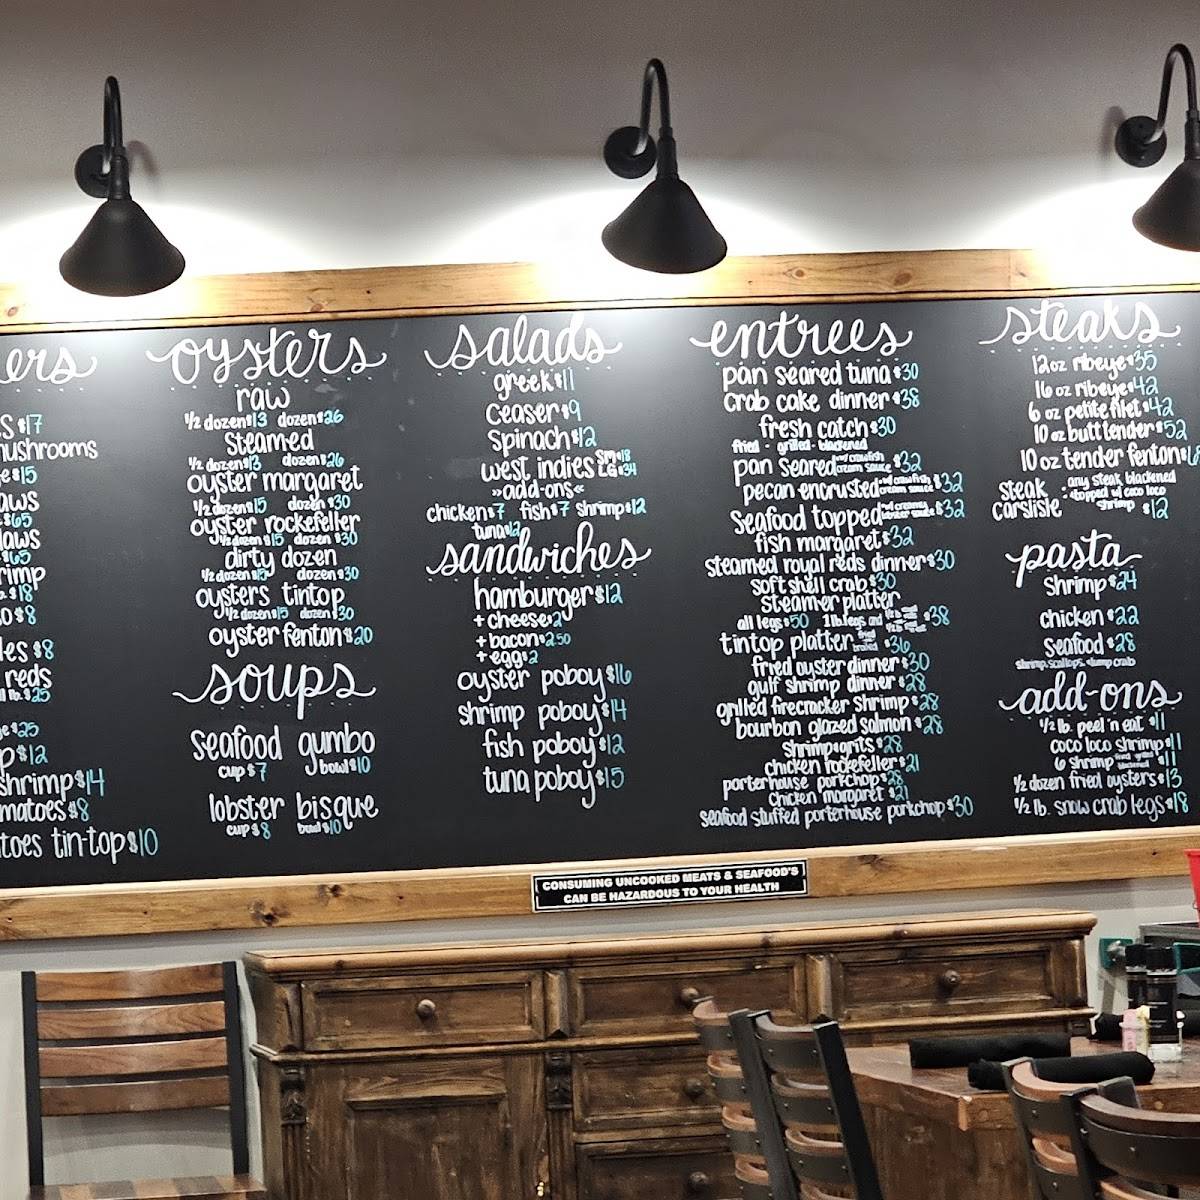 ers
$17
mushrooms
$15
$65
$65
$18
$8
$8
reds
lb. $25
$25
$12
shrimp $14
matoes $8
toes tin-top $10
oysters
raw
1/2 dozen $13 dozen $26
Steamed
1/2 dozen $13 dozen $26
oyster margaret
1/2 dozen $15 dozen $30
oyster rockefeller
1/2 dozen $15 dozen $30
dirty dozen
1/2 dozen $15 dozen $30
oysters tintop
1/2 dozen $15 dozen $30
oyster fenton $20
soups
Seafood gumbo
cup $7 bowl $10
lobster bisque
cup $8 bowl $10
salads
greek $11
Ceaser $9
Spinach $12
west indies SM $18
LG $34
»add-ons«
chicken $7 fish $7 shrimp $12
tuna $12
sandwiches
hamburger $12
+ cheese $2
+ bacon $2.50
+ egg $2
oyster poboy $16
shrimp poboy $14
fish poboy $12
tuna poboy $15
entrees
pan seared tuna $30
Crab cake dinner $38
fresh catch $30
fried - grilled - blackened
pan Seared w/ crawfish cream sauce $32
pecan encrusted w/ crawfish cream sauce $32
Seafood topped $32
fish margaret $32
steamed royal reds dinner $30
soft shell crab $30
Steamer platter
all legs $50 1 lb. legs and $38
tintop platter $36
fried oyster dinner $30
gulf shrimp dinner $28
grilled firecracker Shrimp $28
bourbon glazed Salmon $28
Shrimp & grits $28
chicken rockefeller $21
porterhouse porkchop $28
Chicken margaret $21
Seafood Stuffed porterhouse porkchop $30
steaks
12 oz ribeye $35
16 oz ribeye $42
6 oz petite filet $42
10 oz butt tender $52
10 oz tender fenton
Steak carslisle - any steak blackened
topped w/ coco loco
shrimp $12
pasta
Shrimp $24
chicken $22
Seafood $28
shrimp, scallops, & lump crab
add-ons
1/2 lb. peel 'n eat $11
coco loco shrimp $11
6 shrimp fried grilled blackened $11
1/2 dozen fried oysters $13
1/2 lb. snow crab legs $18
CONSUMING UNCOOKED MEATS & SEAFOOD'S
CAN BE HAZARDOUS TO YOUR HEALTH